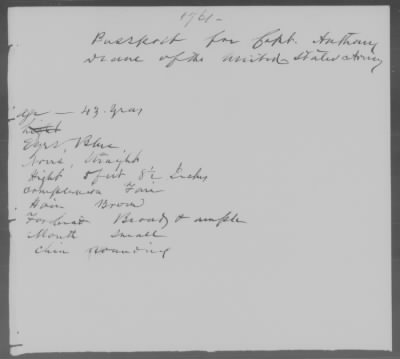 1961-
Passport for Capt. Anthony
Drane of the United States Army
Age — 43. Years
Eyes, Blue
Nose, straight
Hight 5 feet 8½ Inches
Complexion Fair
Hair Brown
Forhead Broad & ample
Mouth small
Chin rounding